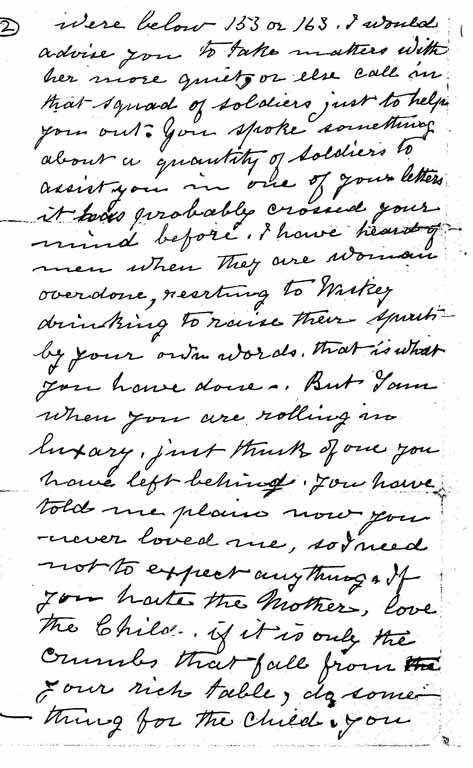 2
were below 153 or 163. I would
advise you to take matters with
her more quiet, or else call in
that squad of soldiers just to help
you out. You spoke something
about a quantity of soldiers to
assist you in one of your letters
it has probably crossed your
mind before. I have heard of
men when they are woman
overdone, resrting to Wiskey
drinking to raise their spirits
by your own words. that is what
you have done. But Tam
when you are rolling in
luxary, just think of one you
have left behind. You have
told me plain now you
never loved me, so I need
not to expect anything. If
you hate the Mother, love
the Child. if it is only the
crumbs that fall from the
your rich table, do some-
thing for the Child. you